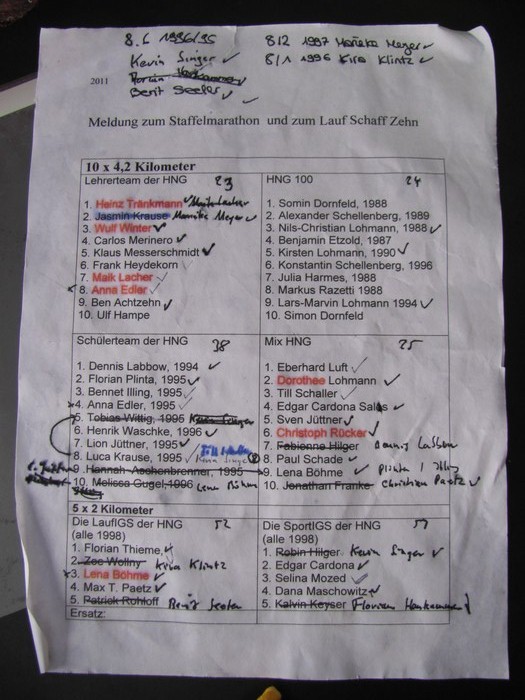 8.6 1996/95
8/2 1997 Marieke Meyer
Kevin Singer
8/1 1996 Kira Klintz
2011
Florian
Berit Seeler
Meldung zum Staffelmarathon und zum Lauf Schaff Zehn
10 x 4,2 Kilometer
Lehrerteam der HNG 23
1. Heinz Tränkmann
2. Jasmin Krause Marieke Meyer
3. Wulf Winter
4. Carlos Merinero
5. Klaus Messerschmidt
6. Frank Heydekorn
7. Maik Lacher
8. Anna Edler
9. Ben Achtzehn
10. Ulf Hampe
HNG 100 24
1. Somin Dornfeld, 1988
2. Alexander Schellenberg, 1989
3. Nils-Christian Lohmann, 1988
4. Benjamin Etzold, 1987
5. Kirsten Lohmann, 1990
6. Konstantin Schellenberg, 1996
7. Julia Harmes, 1988
8. Markus Razetti 1988
9. Lars-Marvin Lohmann 1994
10. Simon Dornfeld
Schülerteam der HNG 38
1. Dennis Labbow, 1994
2. Florian Plinta, 1995
3. Bennet Illing, 1995
4. Anna Edler, 1995
5. Tobias Wittig, 1995 Kevin Singer
6. Henrik Waschke, 1996
7. Lion Jüttner, 1995
8. Luca Krause, 1995
9. Hannah Aschenbrenner, 1995
10. Melissa Gugel, 1996 Lena Böhme
Mix HNG 25
1. Eberhard Luft
2. Dorothee Lohmann
3. Till Schaller
4. Edgar Cardona Salas
5. Sven Jüttner
6. Christoph Rücker
7. Fabienne Hilger Danny
8. Paul Schade
9. Lena Böhme Plinta / Illing
10. Jonathan Franke Christian Paetz
5 x 2 Kilometer
Die LaufIGS der HNG 52
(alle 1998)
1. Florian Thieme,
2. Zoe Wollny Kira Klintz
3. Lena Böhme
4. Max T. Paetz
5. Patrick Rohloff Berit Seeler
Ersatz:
Die SportIGS der HNG 57
(alle 1998)
1. Robin Hilger Kevin Singer
2. Edgar Cardona
3. Selina Mozed
4. Dana Maschowitz
5. Kalvin Keyser Florian